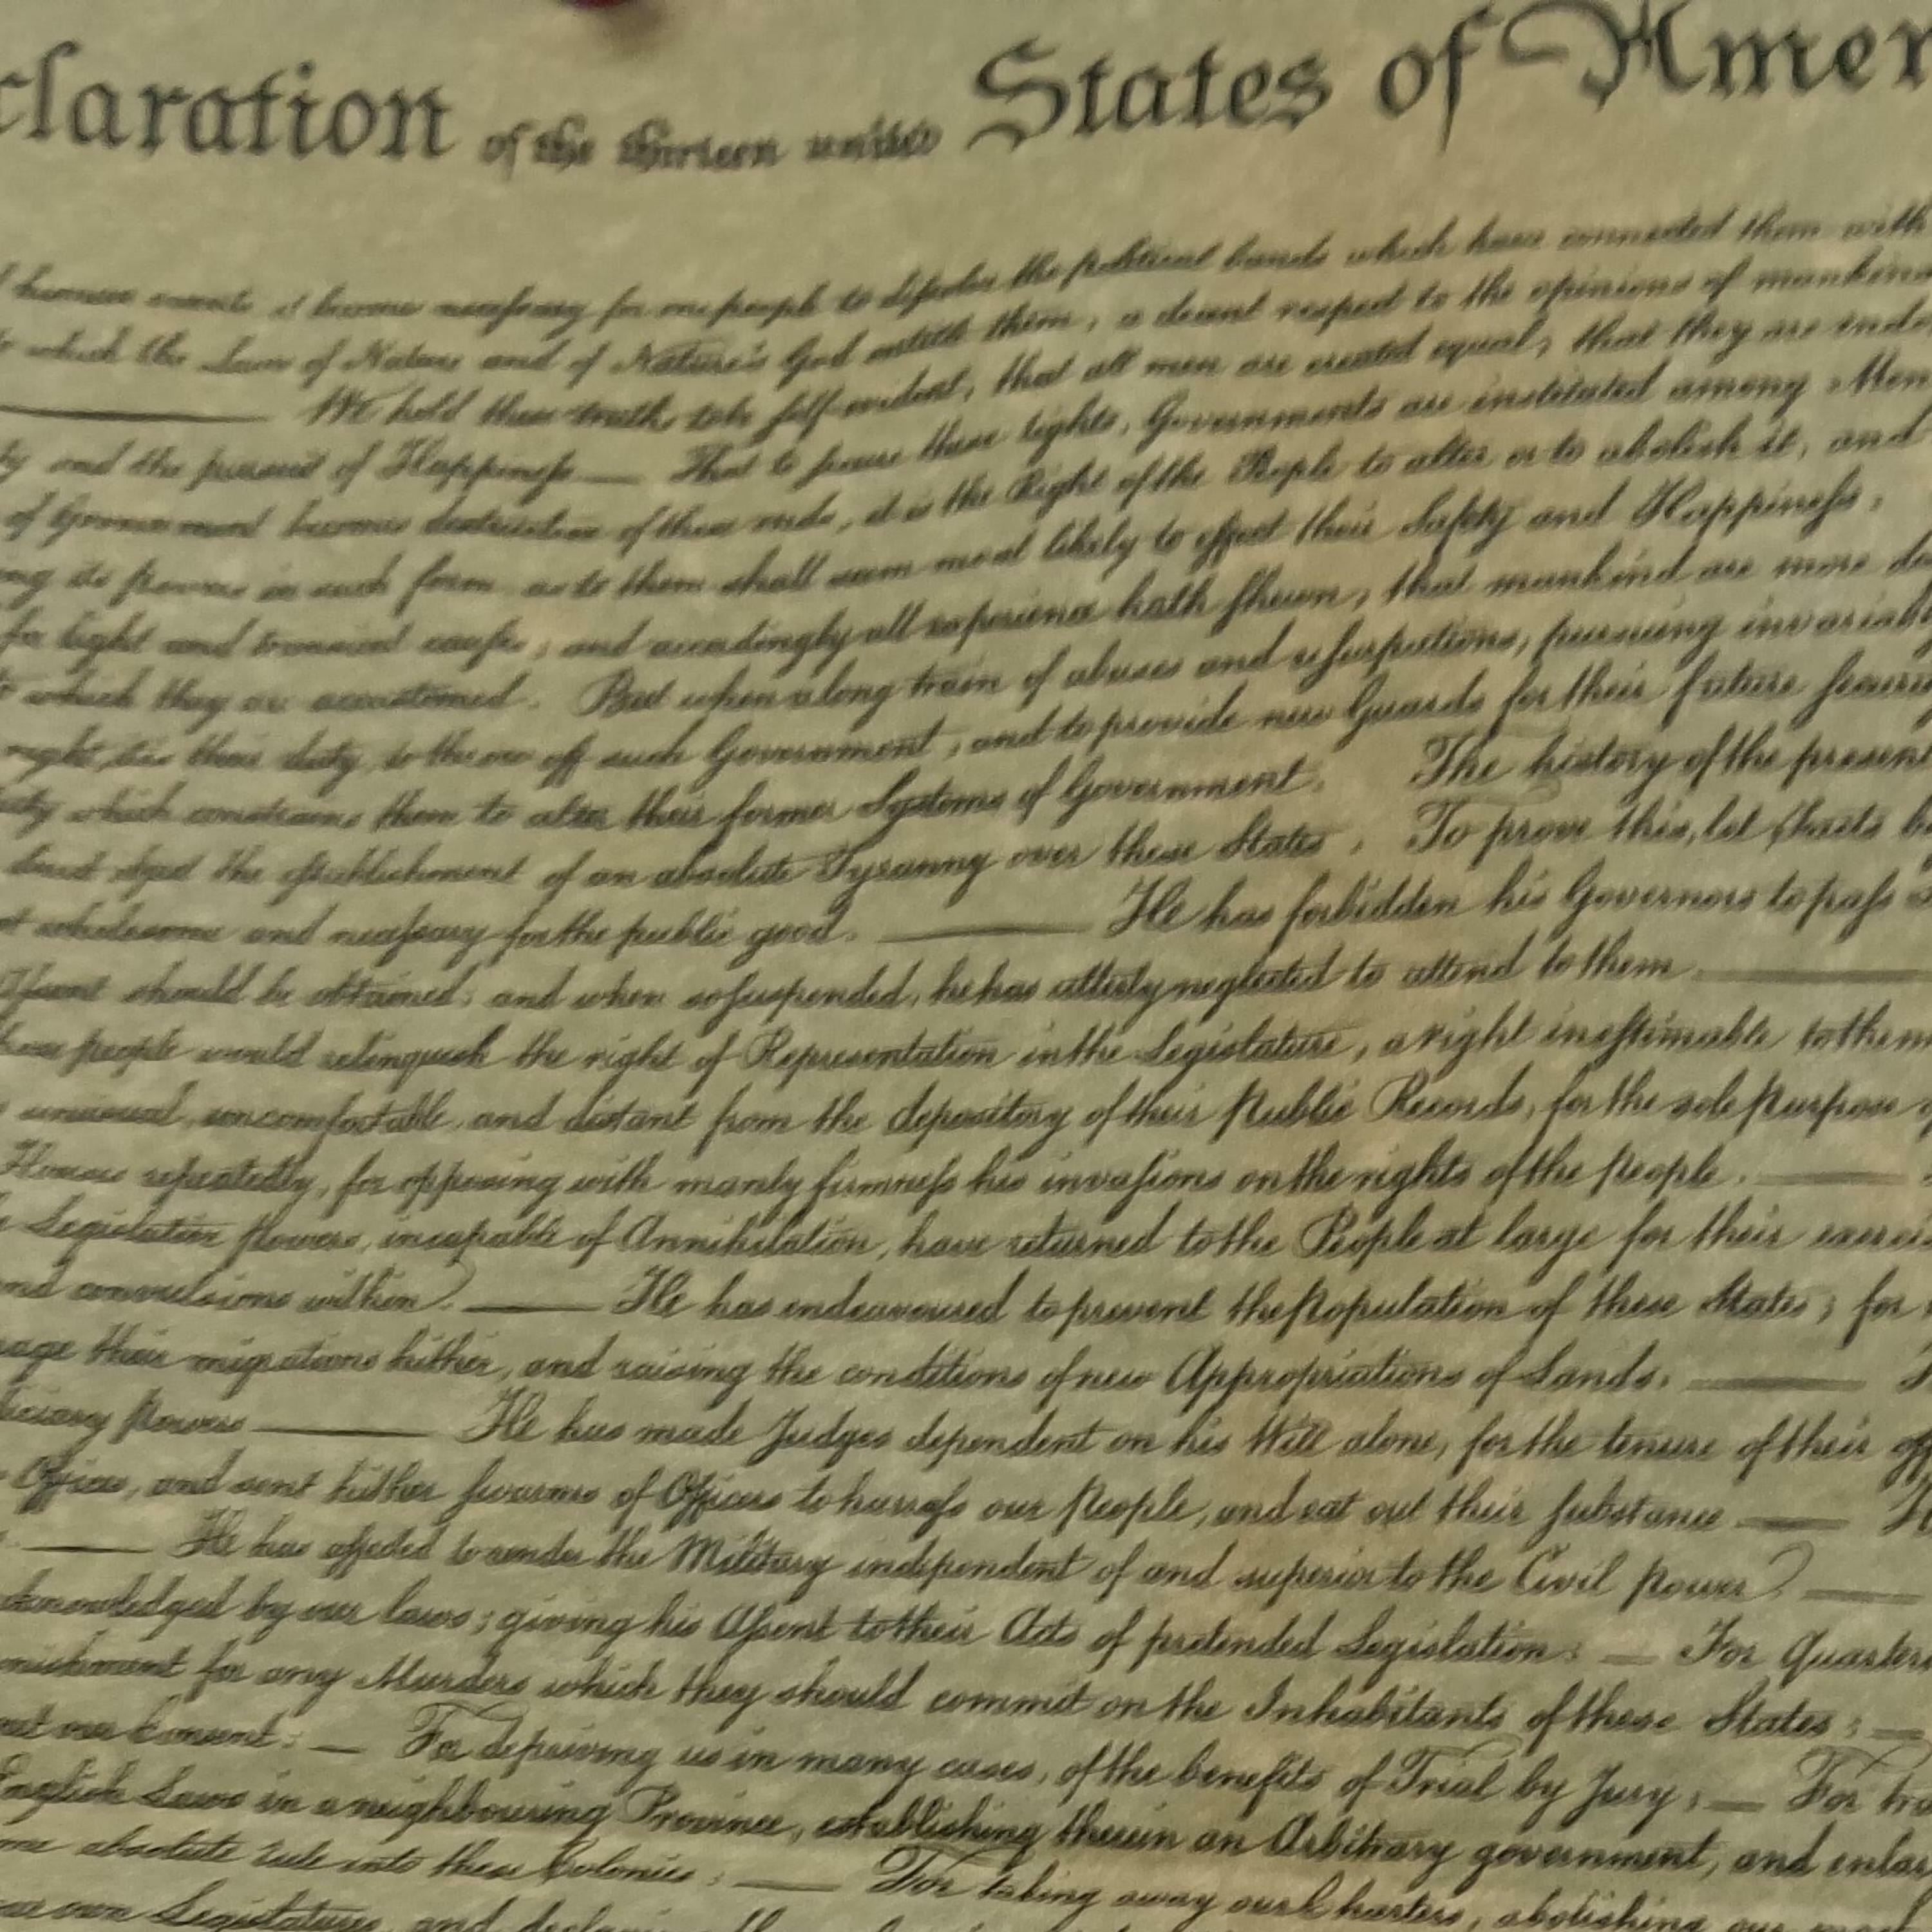 claration of the thirteen united States of Amer
human events it becomes necessary for one people to dissolve the political bands which have connected them with
which the Laws of Nature and of Nature's God entitle them, a decent respect to the opinions of mankind
We hold these truths to be self-evident, that all men are created equal, that they are endo
ty and the pursuit of Happiness— That to secure these rights, Governments are instituted among Men
of Government becomes destructive of these ends, it is the Right of the People to alter or to abolish it, and
ing its powers in such form, as to them shall seem most likely to effect their Safety and Happiness.
for light and transient causes; and accordingly all experience hath shewn, that mankind are more di
to which they are accustomed. But when a long train of abuses and usurpations, pursuing invariab
right, it is their duty, to throw off such Government, and to provide new Guards for their future securi
sity which constrains them to alter their former Systems of Government. The history of the present
direct object the establishment of an absolute Tyranny over these States. To prove this, let Facts b
st wholesome and necessary for the public good. — He has forbidden his Governors to pass
Assent should be obtained; and when so suspended, he has utterly neglected to attend to them. —
those people would relinquish the right of Representation in the Legislature, a right inestimable to them
unusual, uncomfortable, and distant from the depository of their Public Records, for the sole purpose
Houses repeatedly, for opposing with manly firmness his invasions on the rights of the People. —
Legislative Powers, incapable of Annihilation, have returned to the People at large for their exerci
and convulsions within. — He has endeavoured to prevent the Population of these States; for
rage their migrations hither, and raising the conditions of new Appropriations of Lands. —
diciary Powers — He has made Judges dependent on his Will alone, for the tenure of their off
Offices, and sent hither swarms of Officers to harrass our People, and eat out their substance —
— He has affected to render the Military independent of and superior to the Civil Power. —
acknowledged by our laws; giving his Assent to their Acts of pretended Legislation: — For quarteri
unishment for any Murders which they should commit on the Inhabitants of these States: —
out our Consent: — For depriving us in many cases, of the benefits of Trial by Jury; — For tra
English Laws in a neighbouring Province, establishing therein an Arbitrary government, and enlar
me absolute rule into these Colonies: — For taking away our Charters, abolishing our
our own Legislatures, and